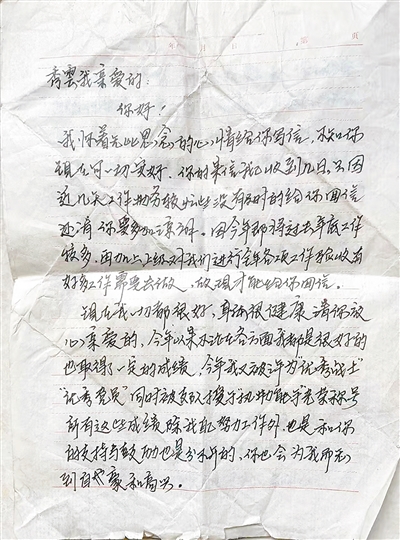 年 月 日 第 页
秀雲我亲爱的:
你好!
我怀着无比思念的心情给你写信,不知你
现在可一切安好。你的来信我已收到几日,只因
近几天工作 些没有及时的给你回信
还请你要多加谅解。因今年即将过去年底工作
较多,再加上上级对我们进行全年各项工作验收有
好多工作需要去做,故现才能给你回信。
现在我一切都很好,身体很健康请你放
心亲爱的,今年以来不论在各方面我都是很好的
也取得了一定的成绩,今年我又被评为"优秀战士"
"优秀党员"同时被支队授予"执勤能手"光荣称号
所有这些成绩除我 努力工作外,也是和你
的支持与鼓励也是分不开的,你也会为我而感
到自豪和高兴。